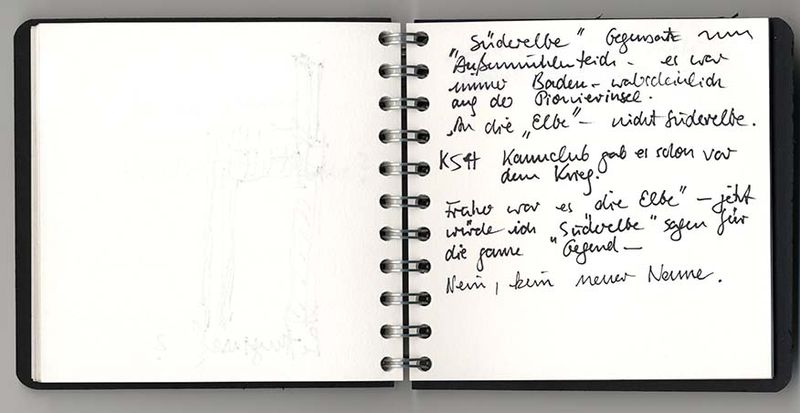 "Süderelbe" Gegensatz zum
"Außenmühlenteich - es war
immer Baden - wahrscheinlich
auf der Pionierinsel.
"An die "Elbe" - nicht Süderelbe.
KSH Kanuclub gab es schon vor
dem Krieg.
Früher war es "die Elbe" - jetzt
würde ich "Süderelbe" sagen für
die ganze "Gegend -
Nein, kein neuer Name.